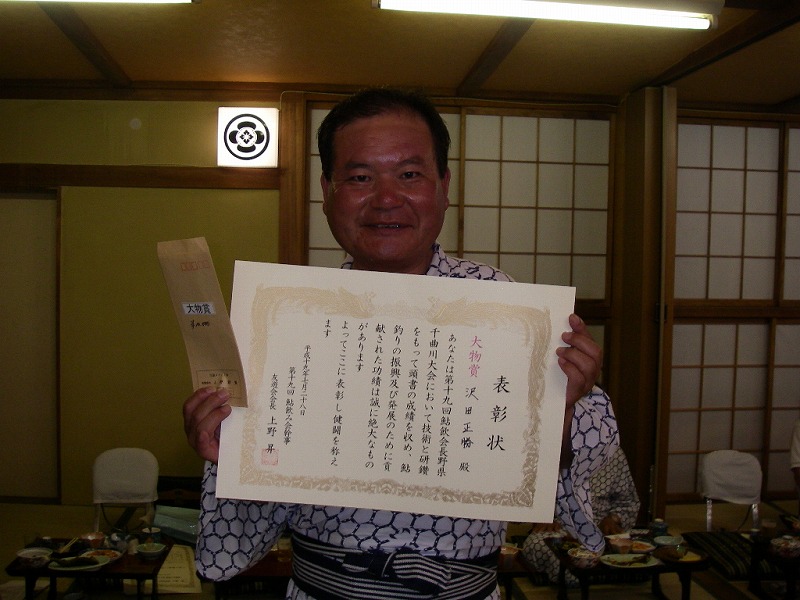 表彰状
大物賞 沢田正勝 殿
あなたは第十九回鮎飲会長野県
千曲川大会において技術と研鑽
をもって頭書の成績を収め、鮎
釣りの振興及び発展のために貢
献された功績は誠に絶大なもの
があります
よってここに表彰し健闘を称え
ます
平成十九年七月二十八日
第十九回鮎飲み会幹事
友遊会会長 上野 昇
大物賞